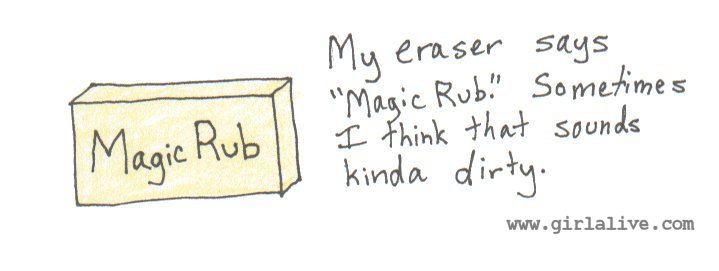 Magic Rub
My eraser says
"Magic Rub." Sometimes
I think that sounds
kinda dirty.
www.girlalive.com